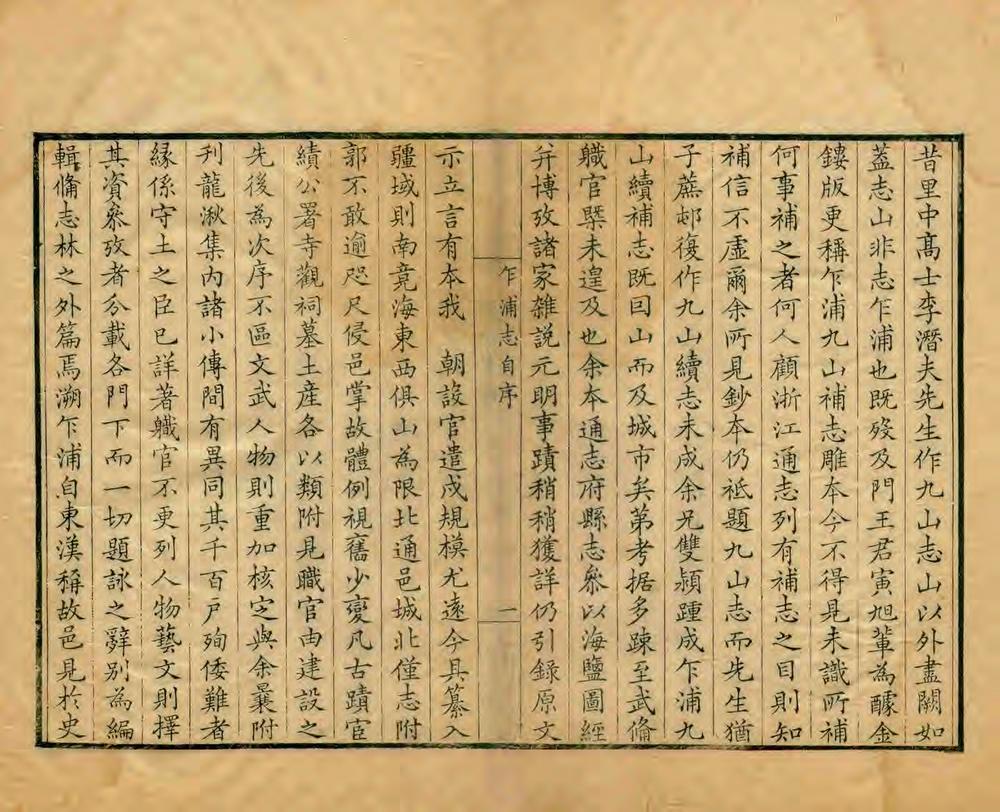 昔里中髙士李潛夫先生作九山志山以外盡闕如
葢志山非志乍浦也既殁及門王君寅旭軰為醵金
鏤版更稱乍浦九山補志雕本今不得見未識所補
何事補之者何人顧浙江通志列有補志之目則知
補信不虛爾余所見鈔本仍祇題九山志而先生猶
子蔗邨復作九山續志未成余兄雙潁踵成乍浦九
山續補志既曰山而及城市矣第考据多踈至武俻
軄官槩未遑及也余本通志府縣志叅以海鹽圖經
幷博攷諸家雜說元明事蹟稍稍獲詳仍引錄原文
乍浦志自序
一
示立言有本我　朝設官遣戍規模尤遠今具纂入
疆域則南竟海東西俱山為限北通邑城北僅志附
郭不敢逾咫尺侵邑掌故體例視舊少變凡古蹟宦
績公署寺觀祠墓土産各以類附見職官由建設之
先後為次序不區文武人物則重加核定與余曩附
刋龍湫集內諸小傳間有異同其千百戶殉倭難者
緣係守土之臣已詳著軄官不更列人物藝文則擇
其資叅攷者分載各門下而一切題詠之辭别為編
輯俻志林之外篇焉溯乍浦自東漢稱故邑見於史